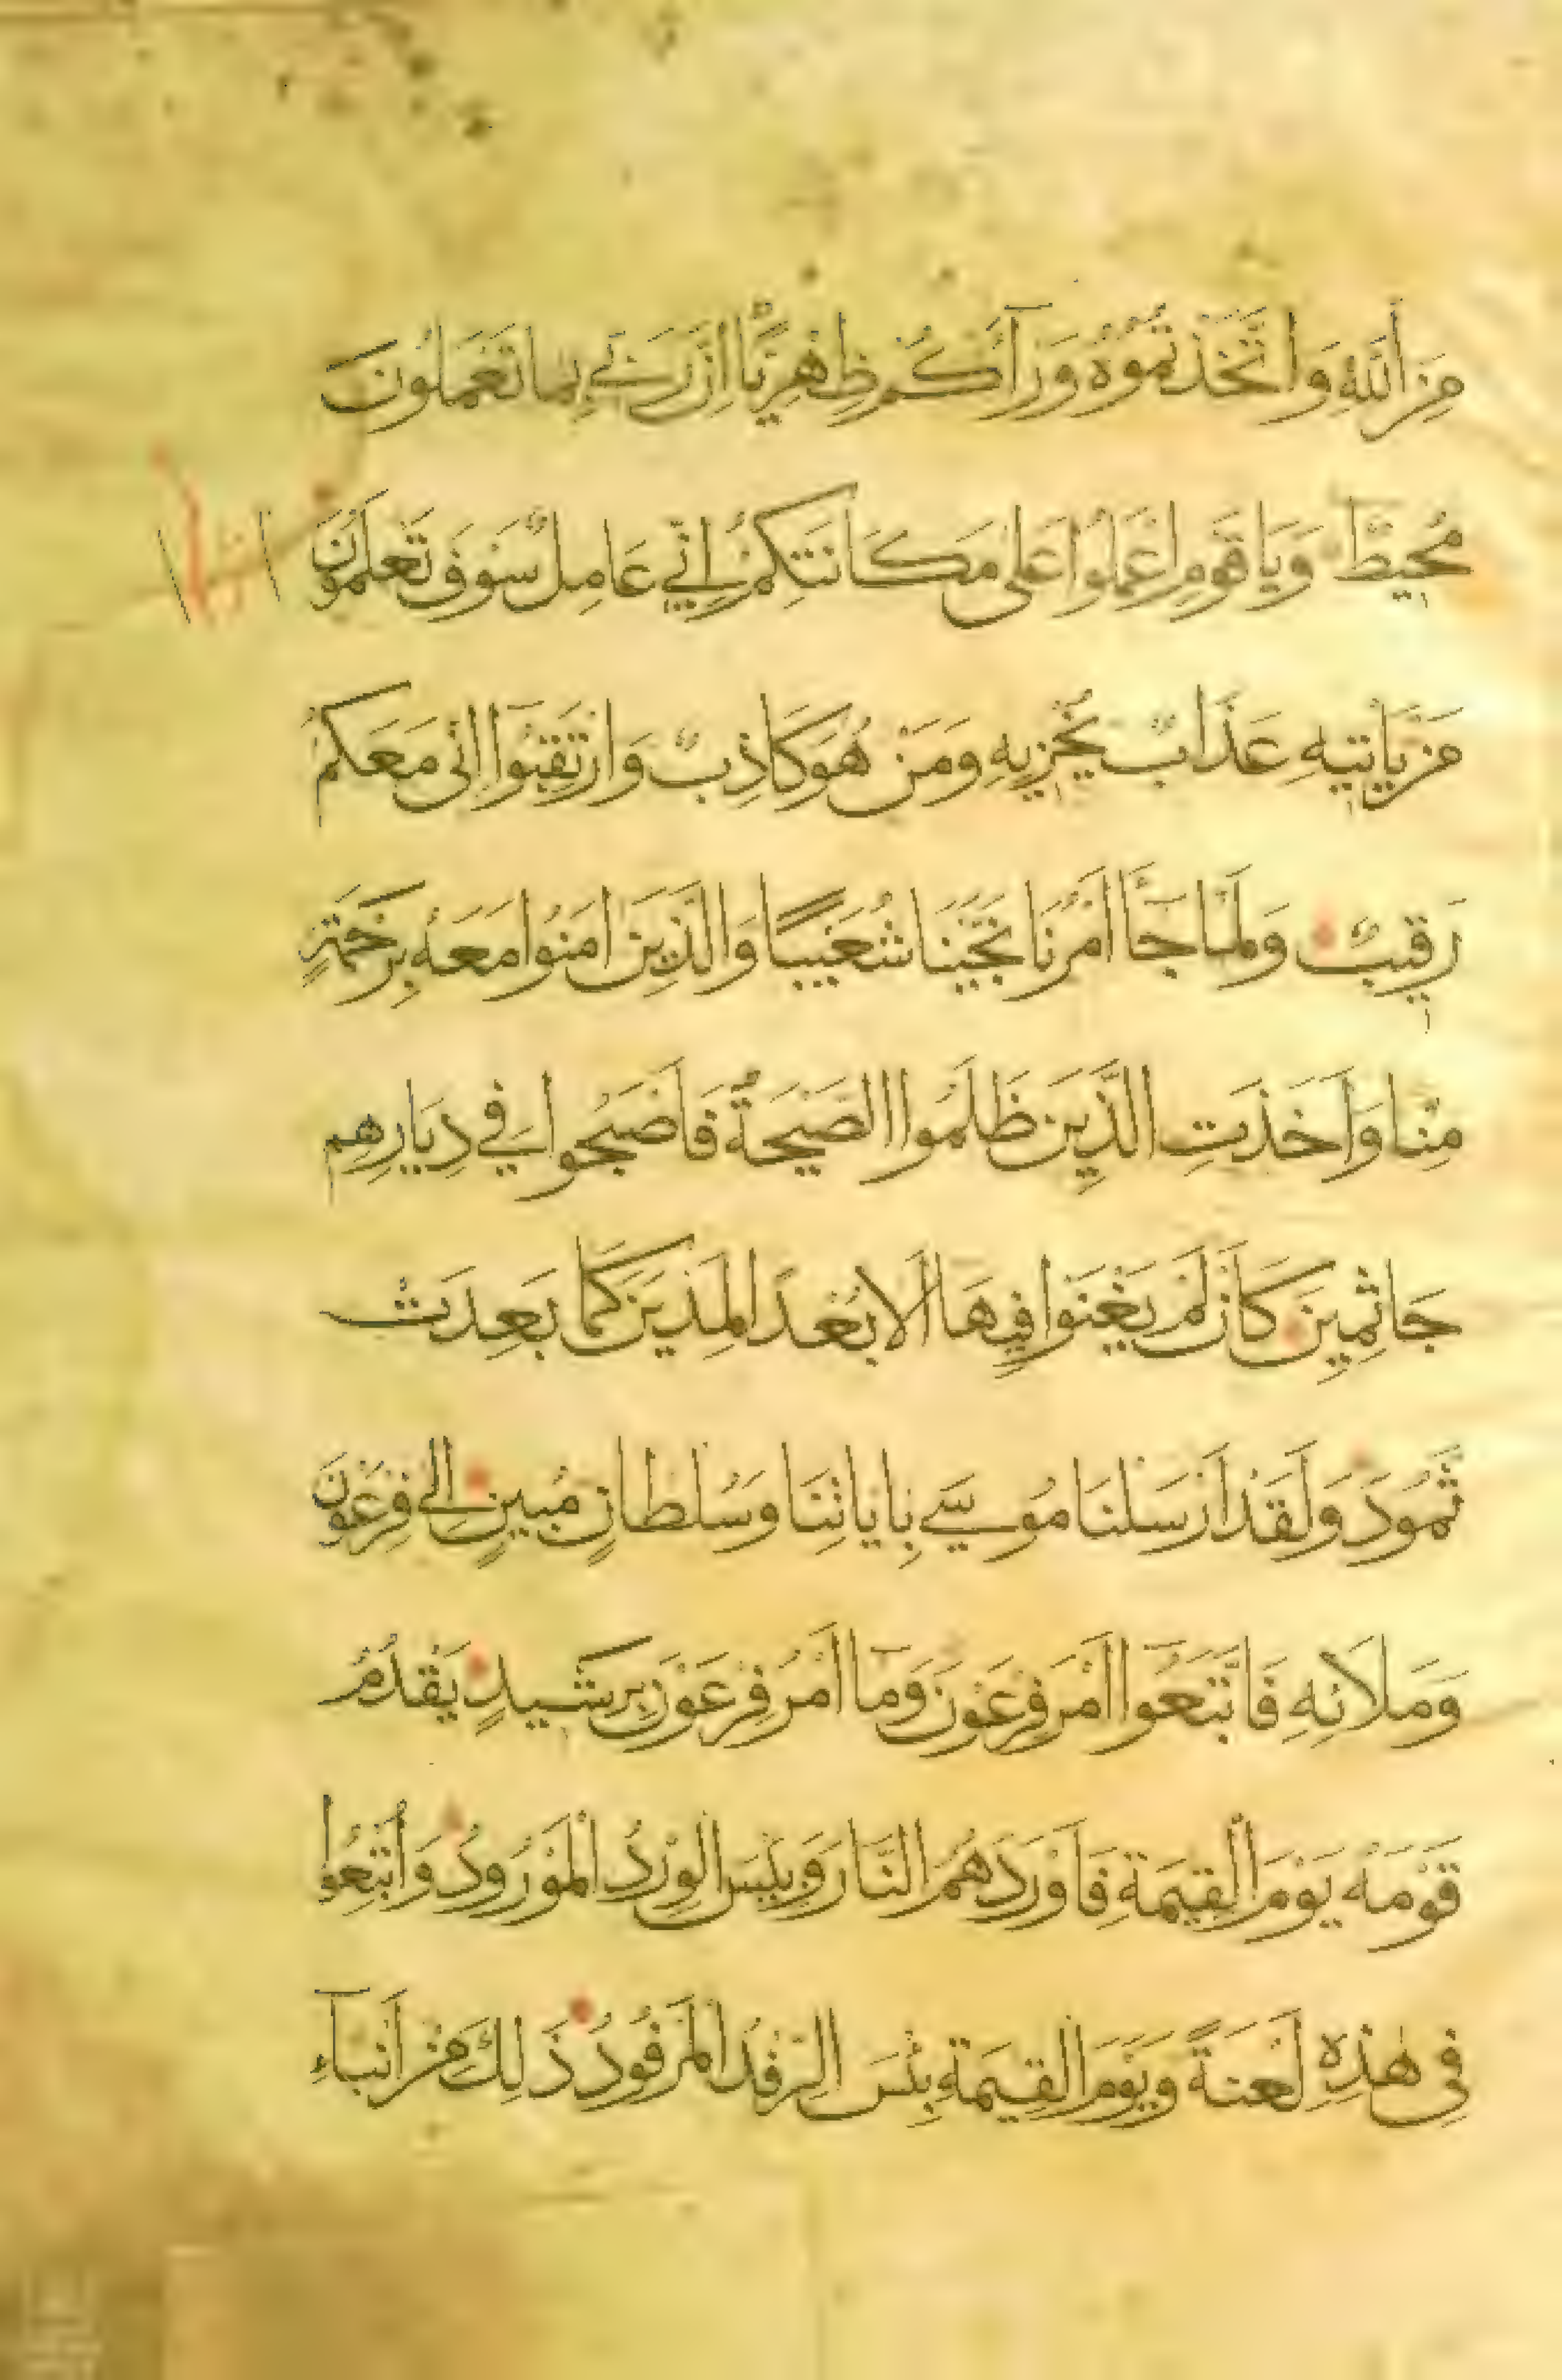 مِنَ اللَّهِ وَاتَّخَذْتُمُوهُ وَرَآءَكُمْ ظِهْرِيًّا اِنَّ رَبِّي بِمَا تَعْمَلُونَ
مُحِيطٌ وَيَا قَوْمِ اعْمَلُوا عَلَى مَكَانَتِكُمْ اِنِّي عَامِلٌ سَوْفَ تَعْلَمُونَ
مَنْ يَأْتِيهِ عَذَابٌ يُخْزِيهِ وَمَنْ هُوَ كَاذِبٌ وَارْتَقِبُوا اِنِّى مَعَكُمْ
رَقِيبٌ وَلَمَّا جَآءَ اَمْرُنَا نَجَّيْنَا شُعَيْبًا وَالَّذِينَ اٰمَنُوا مَعَهُ بِرَحْمَةٍ
مِنَّا وَاَخَذَتِ الَّذِينَ ظَلَمُوا الصَّيْحَةُ فَاَصْبَحُوا فِي دِيَارِهِمْ
جَاثِمِينَ كَاَنْ لَمْ يَغْنَوْا فِيهَا اَلَا بُعْدًا لِمَدْيَنَ كَمَا بَعِدَتْ
ثَمُودُ وَلَقَدْ اَرْسَلْنَا مُوسَى بِاٰيَاتِنَا وَسُلْطَانٍ مُبِينٍ اِلَى فِرْعَوْنَ
وَمَلَائِهِ فَاتَّبَعُوا اَمْرَ فِرْعَوْنَ وَمَا اَمْرُ فِرْعَوْنَ بِرَشِيدٍ يَقْدُمُ
قَوْمَهُ يَوْمَ الْقِيمَةِ فَاَوْرَدَهُمُ النَّارَ وَبِئْسَ الْوِرْدُ الْمَوْرُودُ وَاُتْبِعُوا
فِى هٰذِهِ لَعْنَةً وَيَوْمَ الْقِيمَةِ بِئْسَ الرِّفْدُ الْمَرْفُودُ ذَلِكَ مِنْ اَنْبَآءِ